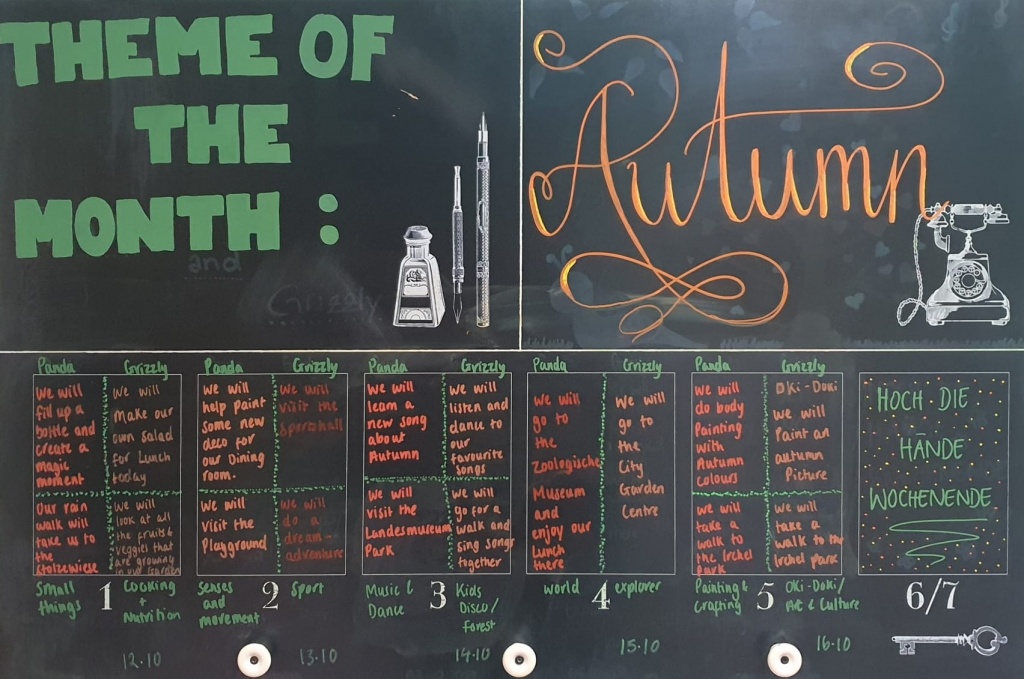 THEME OF
THE
MONTH :
and
Grizzly
Autumn
Panda
We will
fill up a
bottle and
create a
magic
moment
Our rain
walk will
take us to
the
Stolzewiese
Grizzly
We will
make our
own salad
for Lunch
today
We will
look at all
the fruits &
veggies that
are growing
in our Garden
Small
things
1
Cooking
+
Nutrition
12.10
Panda
We will
help paint
some new
deco for
our Dining
room.
We will
visit the
Playground
Grizzly
We will
visit the
sportshall
We will
do a
dream-
adventure
Senses
and
movement
2
Sport
13.10
Panda
We will
learn a
new song
about
Autumn
We will
visit the
Landesmuseum
Park
Grizzly
We will
listen and
dance to
our
favourite
songs
We will
go for a
walk and
sing songs
together
Music &
Dance
3
Kids
Disco/
Forest
14.10
Panda
We will
go to
the
Zoologische
Museum
and
enjoy our
Lunch
there
Grizzly
We will
go to
the
City
Garden
Centre
world
4
explorer
15.10
Panda
We will
do body
Painting
with
Autumn
colours
We will
take a
walk to
the Irchel
park
Grizzly
Oki-Doki
We will
Paint an
autumn
Picture
We will
take a
walk to the
Irchel park
Painting &
Crafting
5
Oki-Doki/
Art & Culture
16.10
HOCH DIE
HÄNDE
WOCHENENDE
6/7